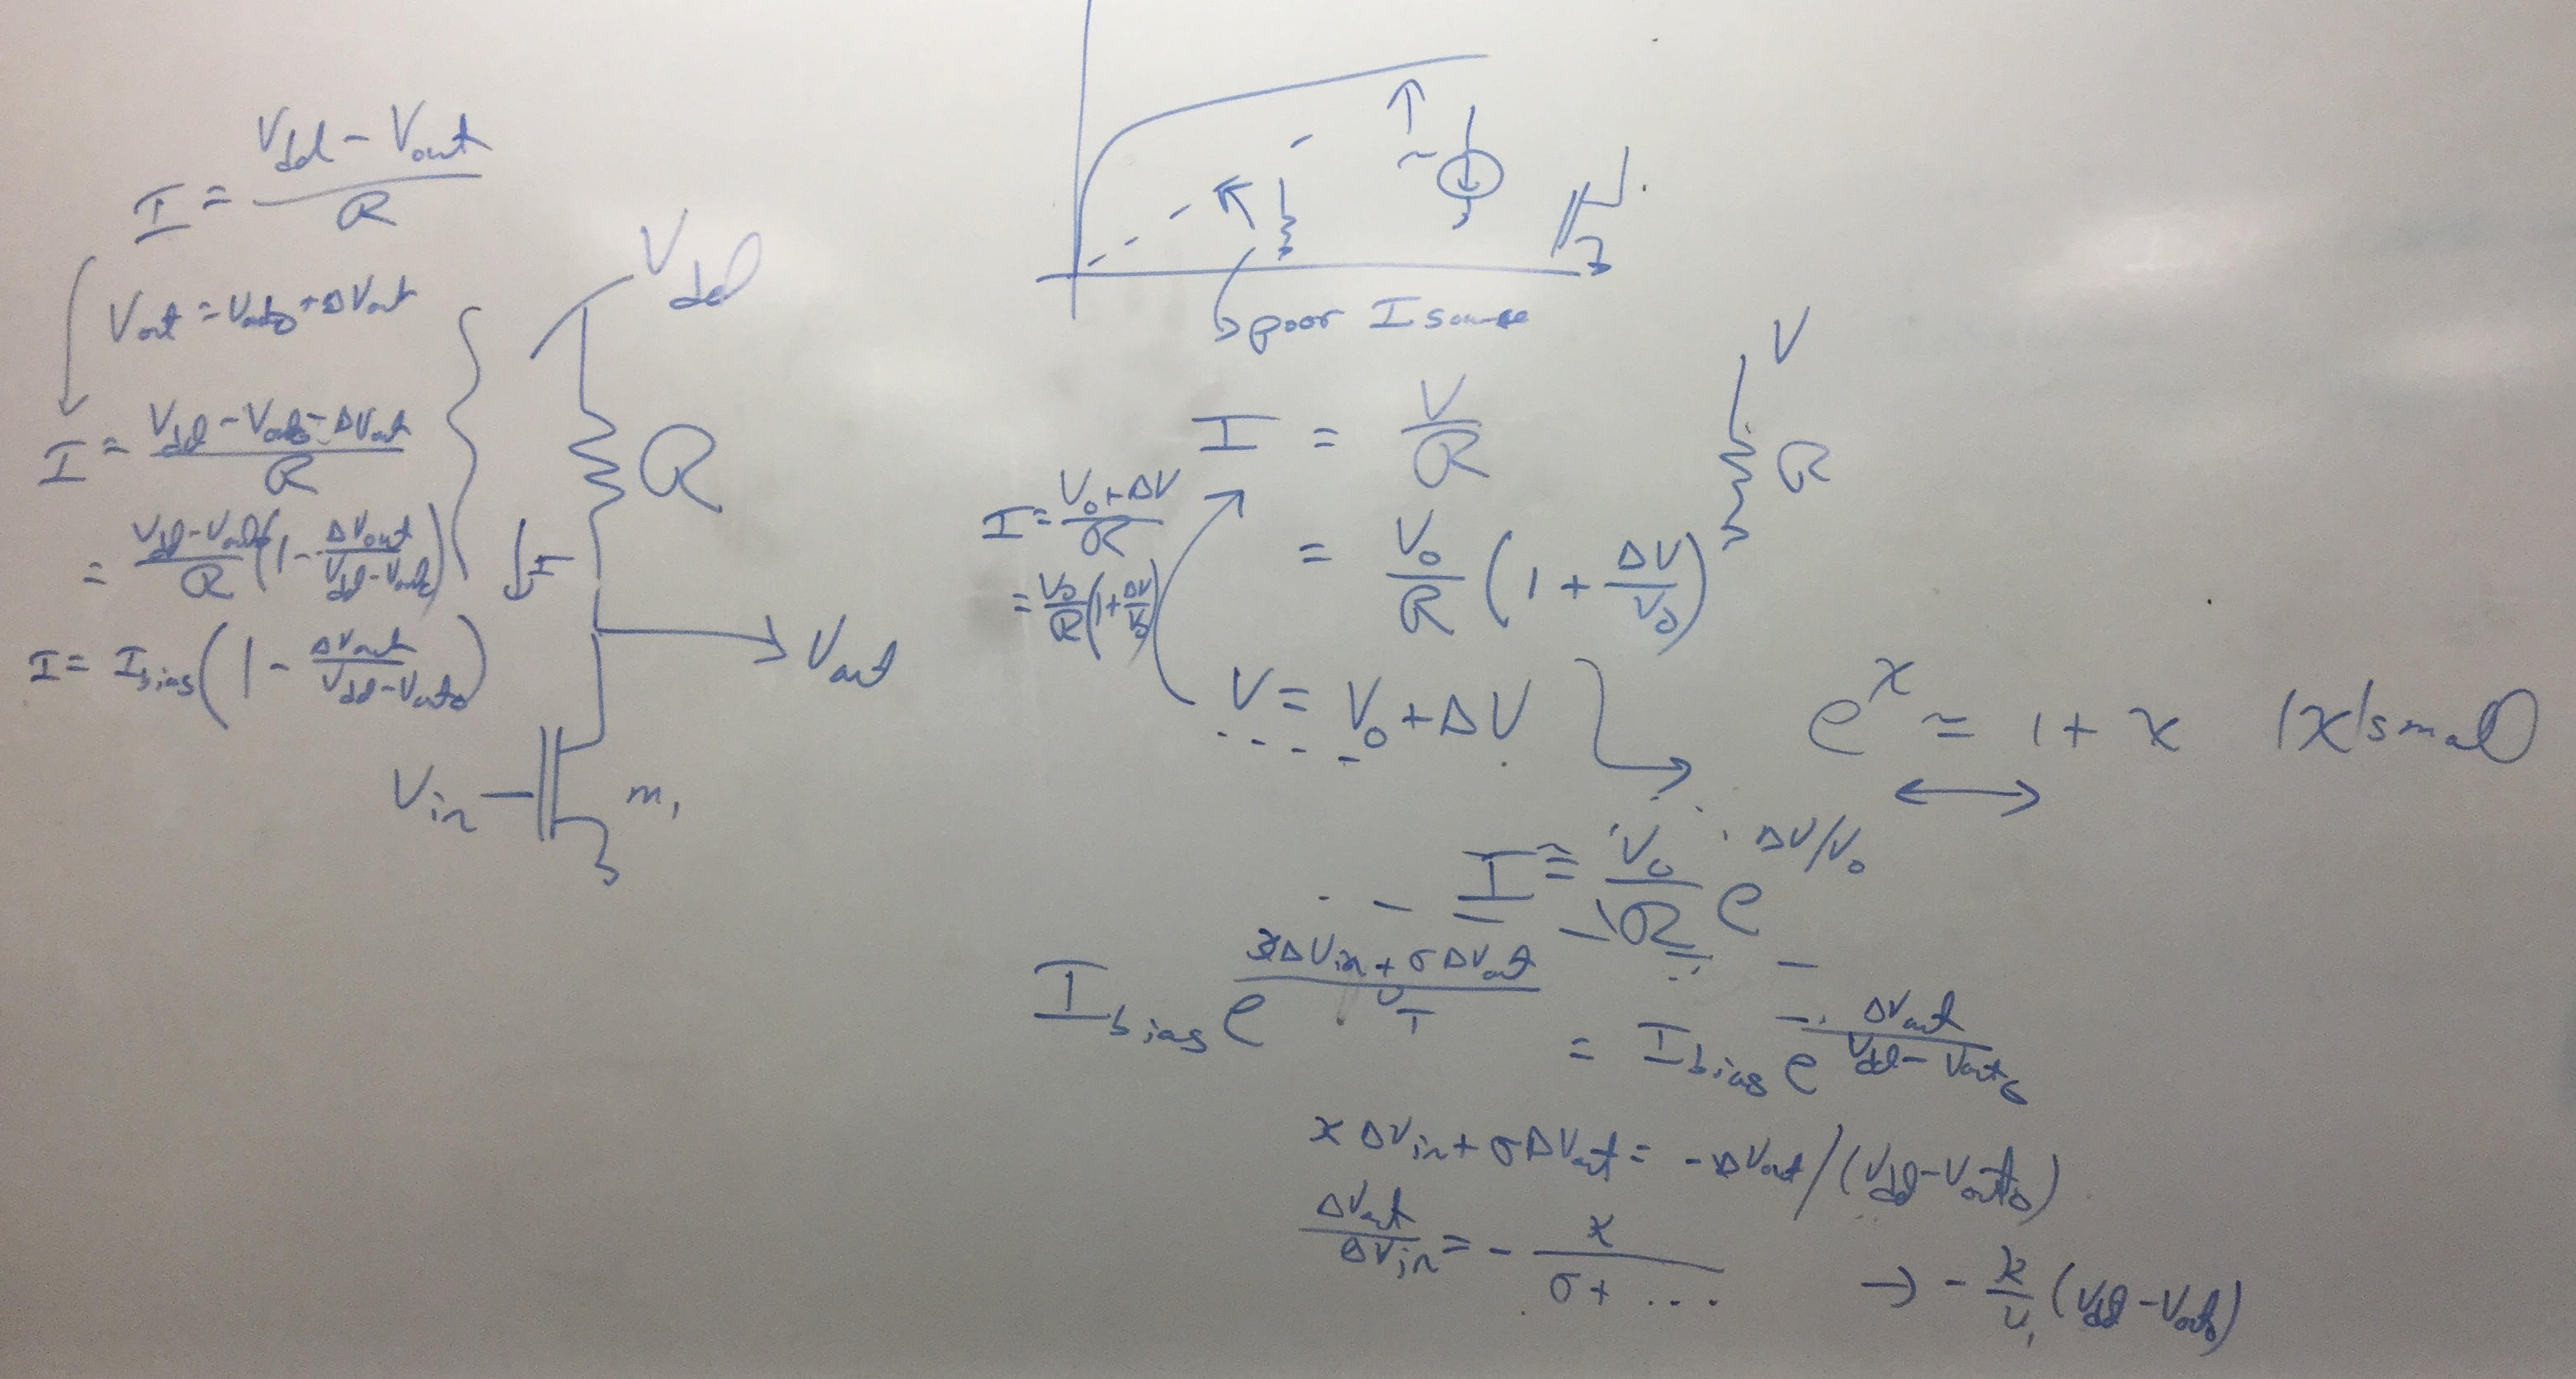 I = (Vdd - Vout) / R
Vout = Vout0 + ΔVout
I = (Vdd - Vout0 - ΔVout) / R
= (Vdd - Vout0) / R (1 - ΔVout / (Vdd - Vout0))
I = Ibias (1 - ΔVout / (Vdd - Vout0))
Vdd
R
I
Vout
Vin
m1
~
poor I source
I = V / R
V
R
I = (V0 + ΔV) / R
= V0 / R (1 + ΔV / V0)
= V0 / R (1 + ΔV / V0)
V = V0 + ΔV
e^x ≈ 1 + x |x| small
I ≅ V0 / R e^(ΔV/V0)
Ibias e^((κΔVin + σΔVout) / UT) = Ibias e^(-ΔVout / (Vdd - Vout0))
κΔVin + σΔVout = -ΔVout / (Vdd - Vout0)
ΔVout / ΔVin = - κ / (σ + ...) → - κ / UT (Vdd - Vout0)